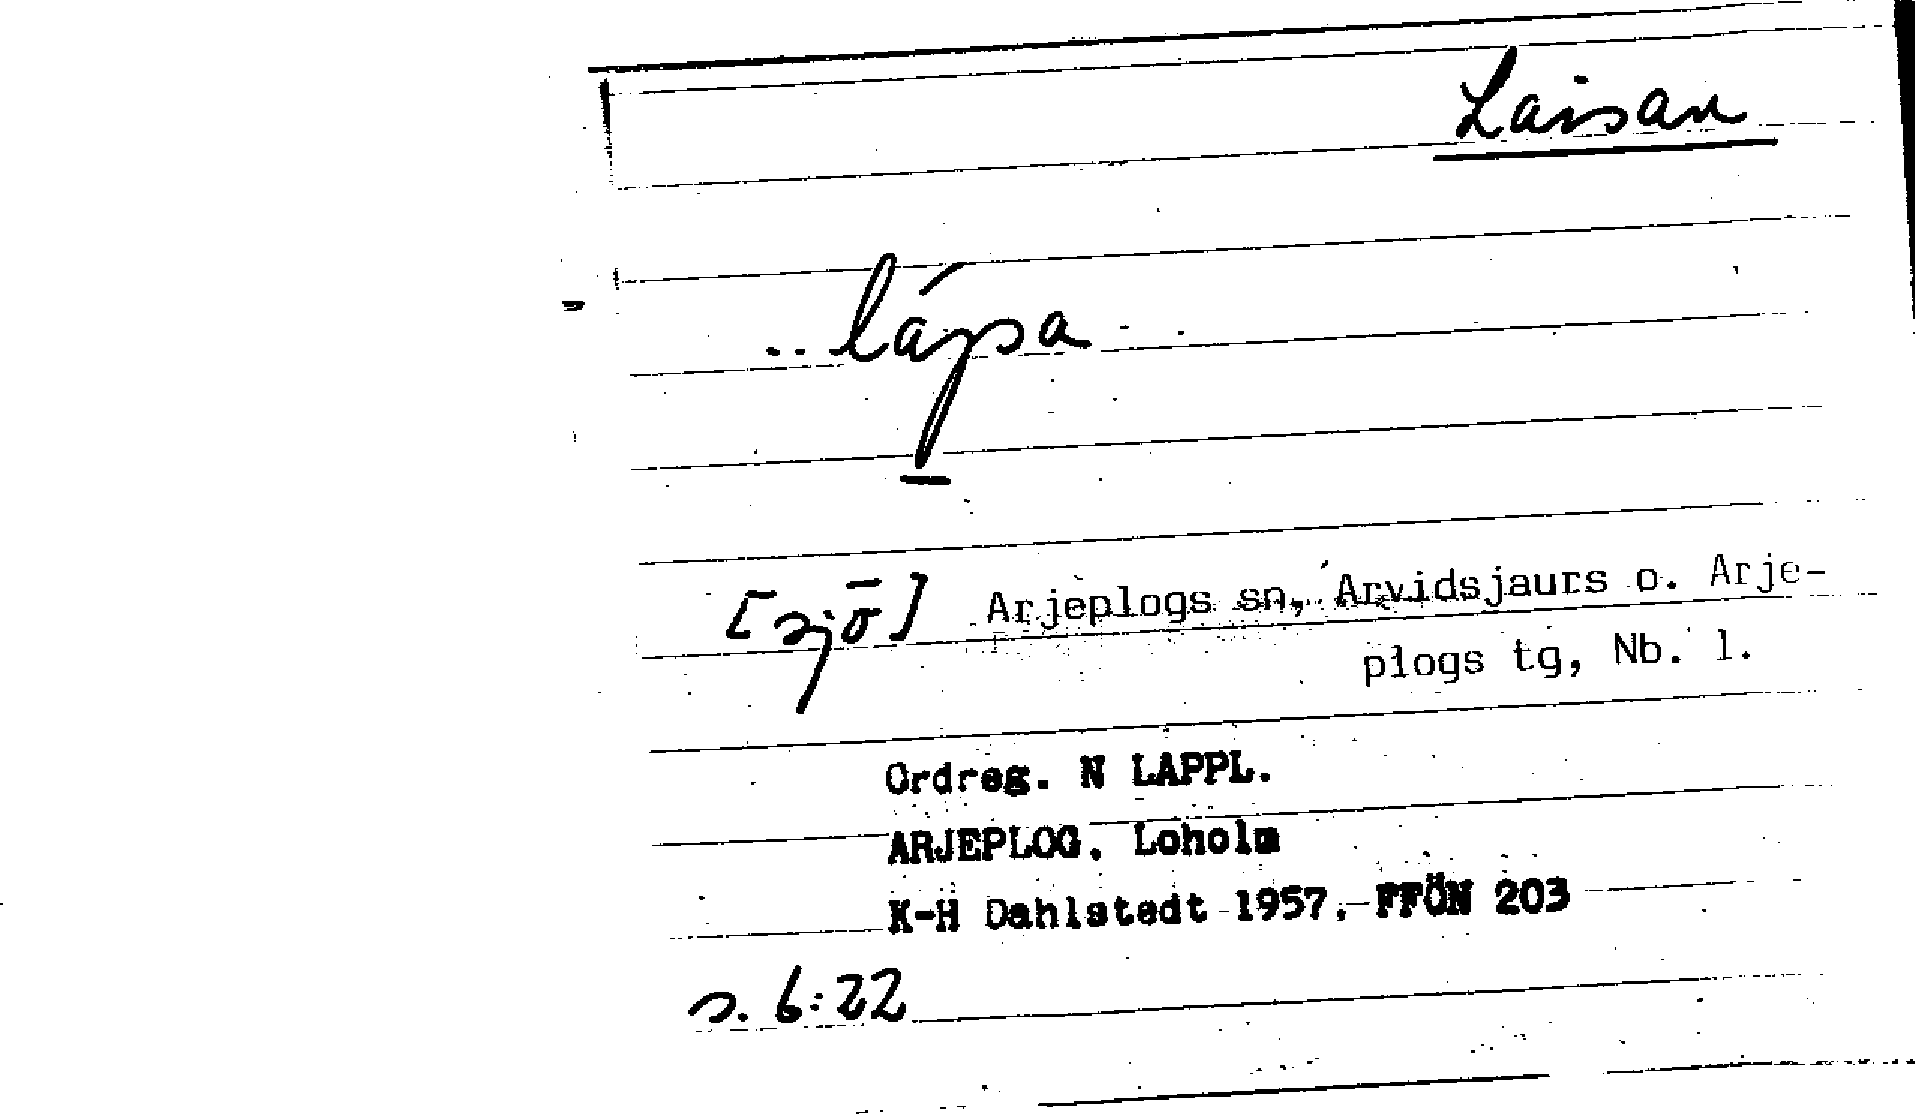 Laisan
.. lájsa
[sjō̄] Arjeplogs sn, Arvidsjaurs o. Arje-
plogs tg, Nb. l.
Ordreg. N LAPPL.
ARJEPLOG. Loholm
K-H Dahlstedt 1957. FFÖN 203
s. 6:22